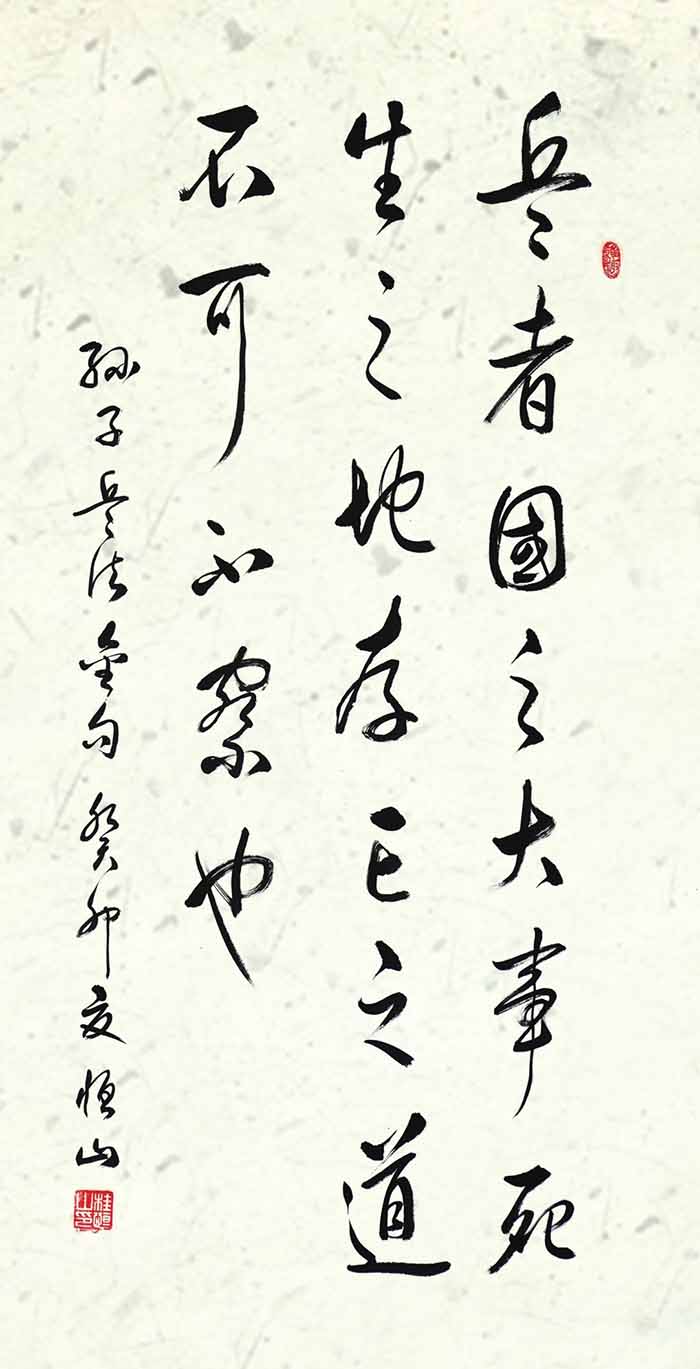 兵者國之大事死
生之地存亡之道
不可不察也
孙子兵法金句癸卯夏恒山